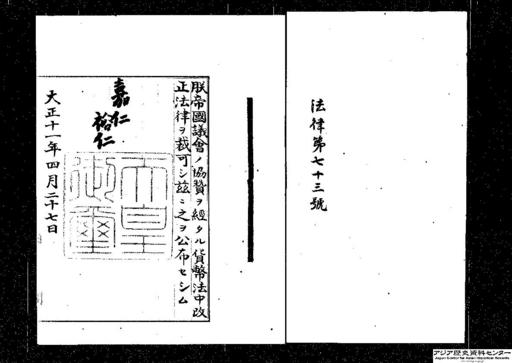 法律第七十三號
朕帝國議會ノ協贊ヲ經タル貨幣法中改
正法律ヲ裁可シ茲ニ之ヲ公布セシム
嘉仁
裕仁
天皇御璽
大正十一年四月二十七日
アジア歴史資料センター
Japan Center for Asian Historical Records